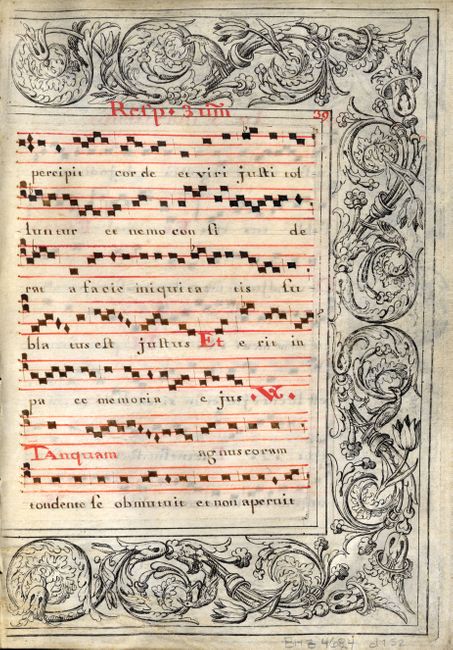 Resp. 3um 39
percipit cor de et viri justi tol
luntur et nemo con si de
rat a facie iniquita tis su
bla tus est justus Et e rit in
pa ce memoria e jus. V.
TAnquam agnus coram
tondente se obmutuit et non aperuit